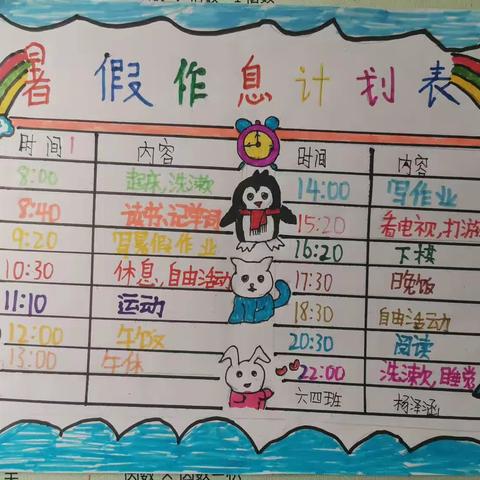 暑假作息计划表
时间 内容 时间 内容
8:00 起床,洗漱 14:00 写作业
8:40 读书,记单词 15:20 看电视,打游
9:20 写暑假作业 16:20 下棋
10:30 休息,自由活动 17:30 晚饭
11:10 运动 18:30 自由活动
12:00 午饭 20:30 阅读
13:00 午休 22:00 洗漱,睡觉
六四班 杨泽涵